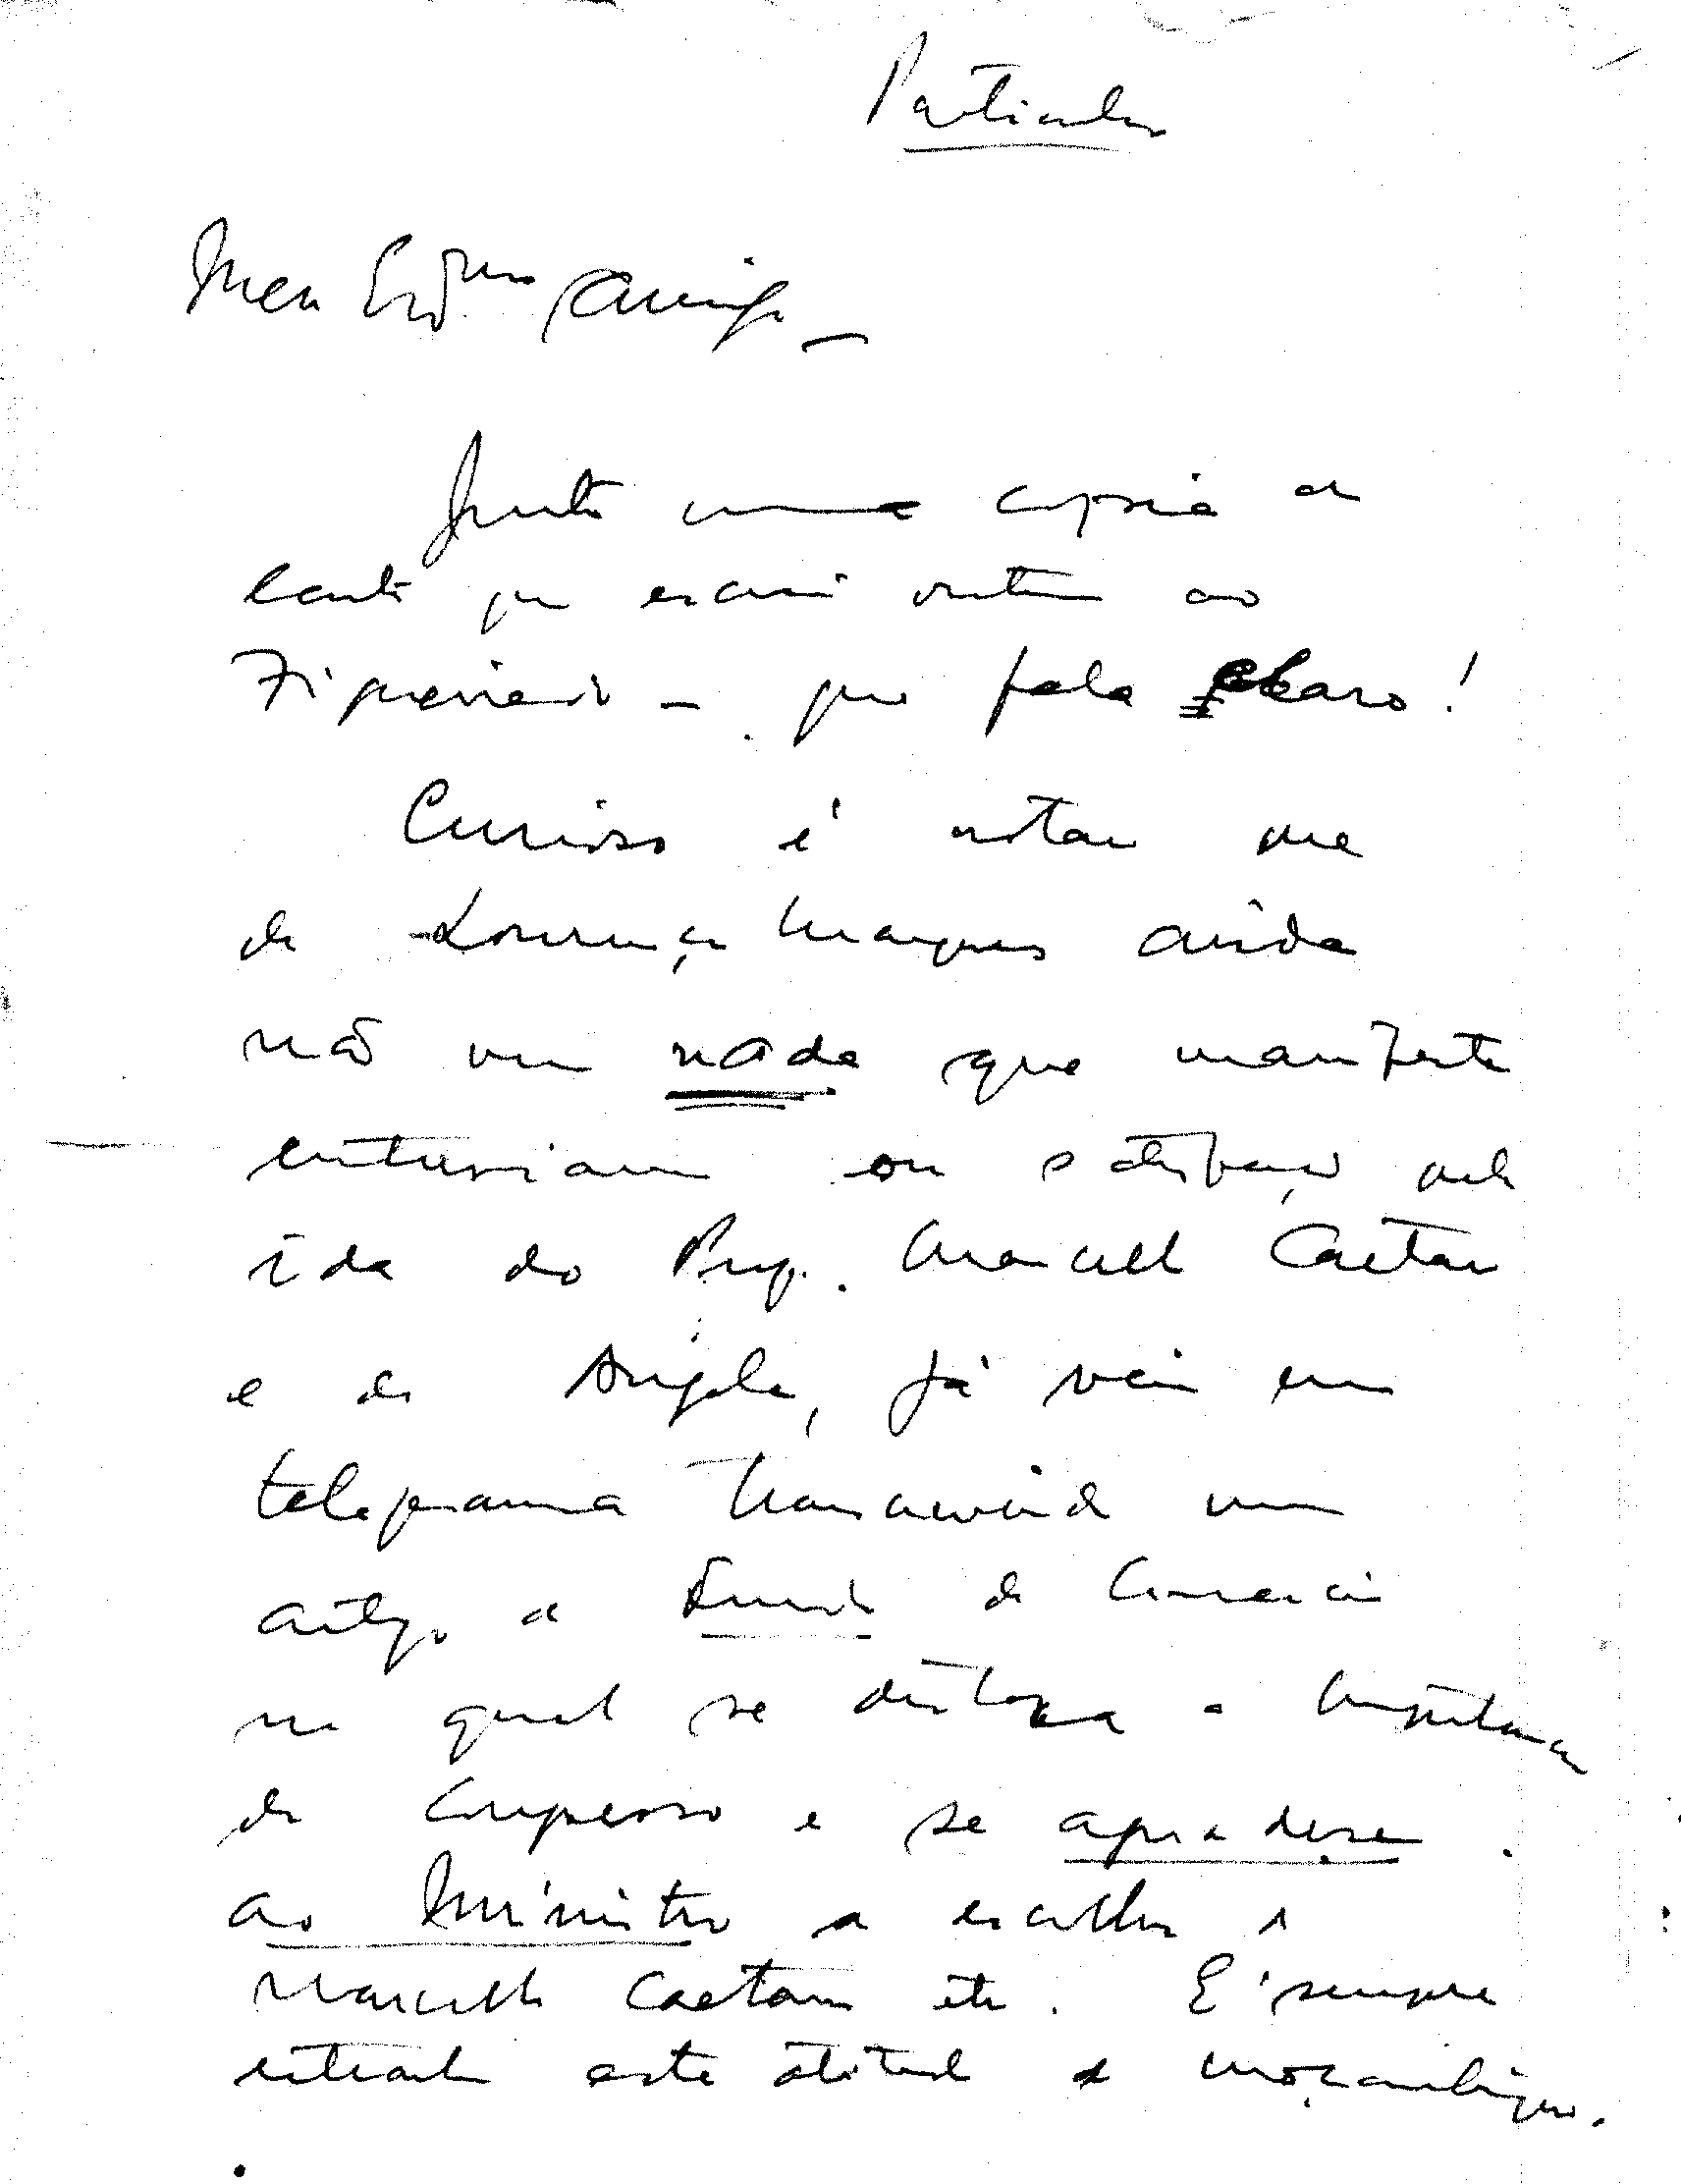 Particular
Meu Exmo Amigo _
Junto uma copia da
carta que escrevi ontem ao
Figueiredo – que fala claro!
Curioso é notar que
de Lourenço Marques ainda
não vem nada que manifeste
entusiasmo ou satisfação pela
ida do Prof. Marcello Caetano
e de Angola, já veio em
telegrama transcrevendo um
artigo do de Comercio
no qual se destaca a importancia
do Congresso e se agradece
ao Ministro a escolha de
Marcello Caetano etc. É sempre
estranha esta atitude de Moçambique.